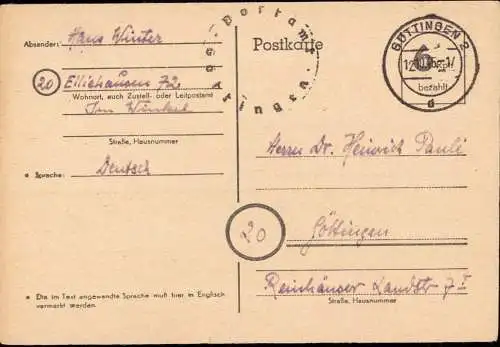 Postkarte
GÖTTINGEN 2
6
bezahlt
d
Absender: Hans Winter
20 Ellichausen 72
Wohnort, auch Zustell- oder Leitpostamt
Im Winkel
Straße, Hausnummer
Sprache: Deutsch
Die im Text angewandte Sprache muß hier in Englisch
vermerkt werden.
Herrn Dr. Heinrich Pauli
20 Göttingen
Reinhäuser Landstr 7 I
Straße, Hausnummer